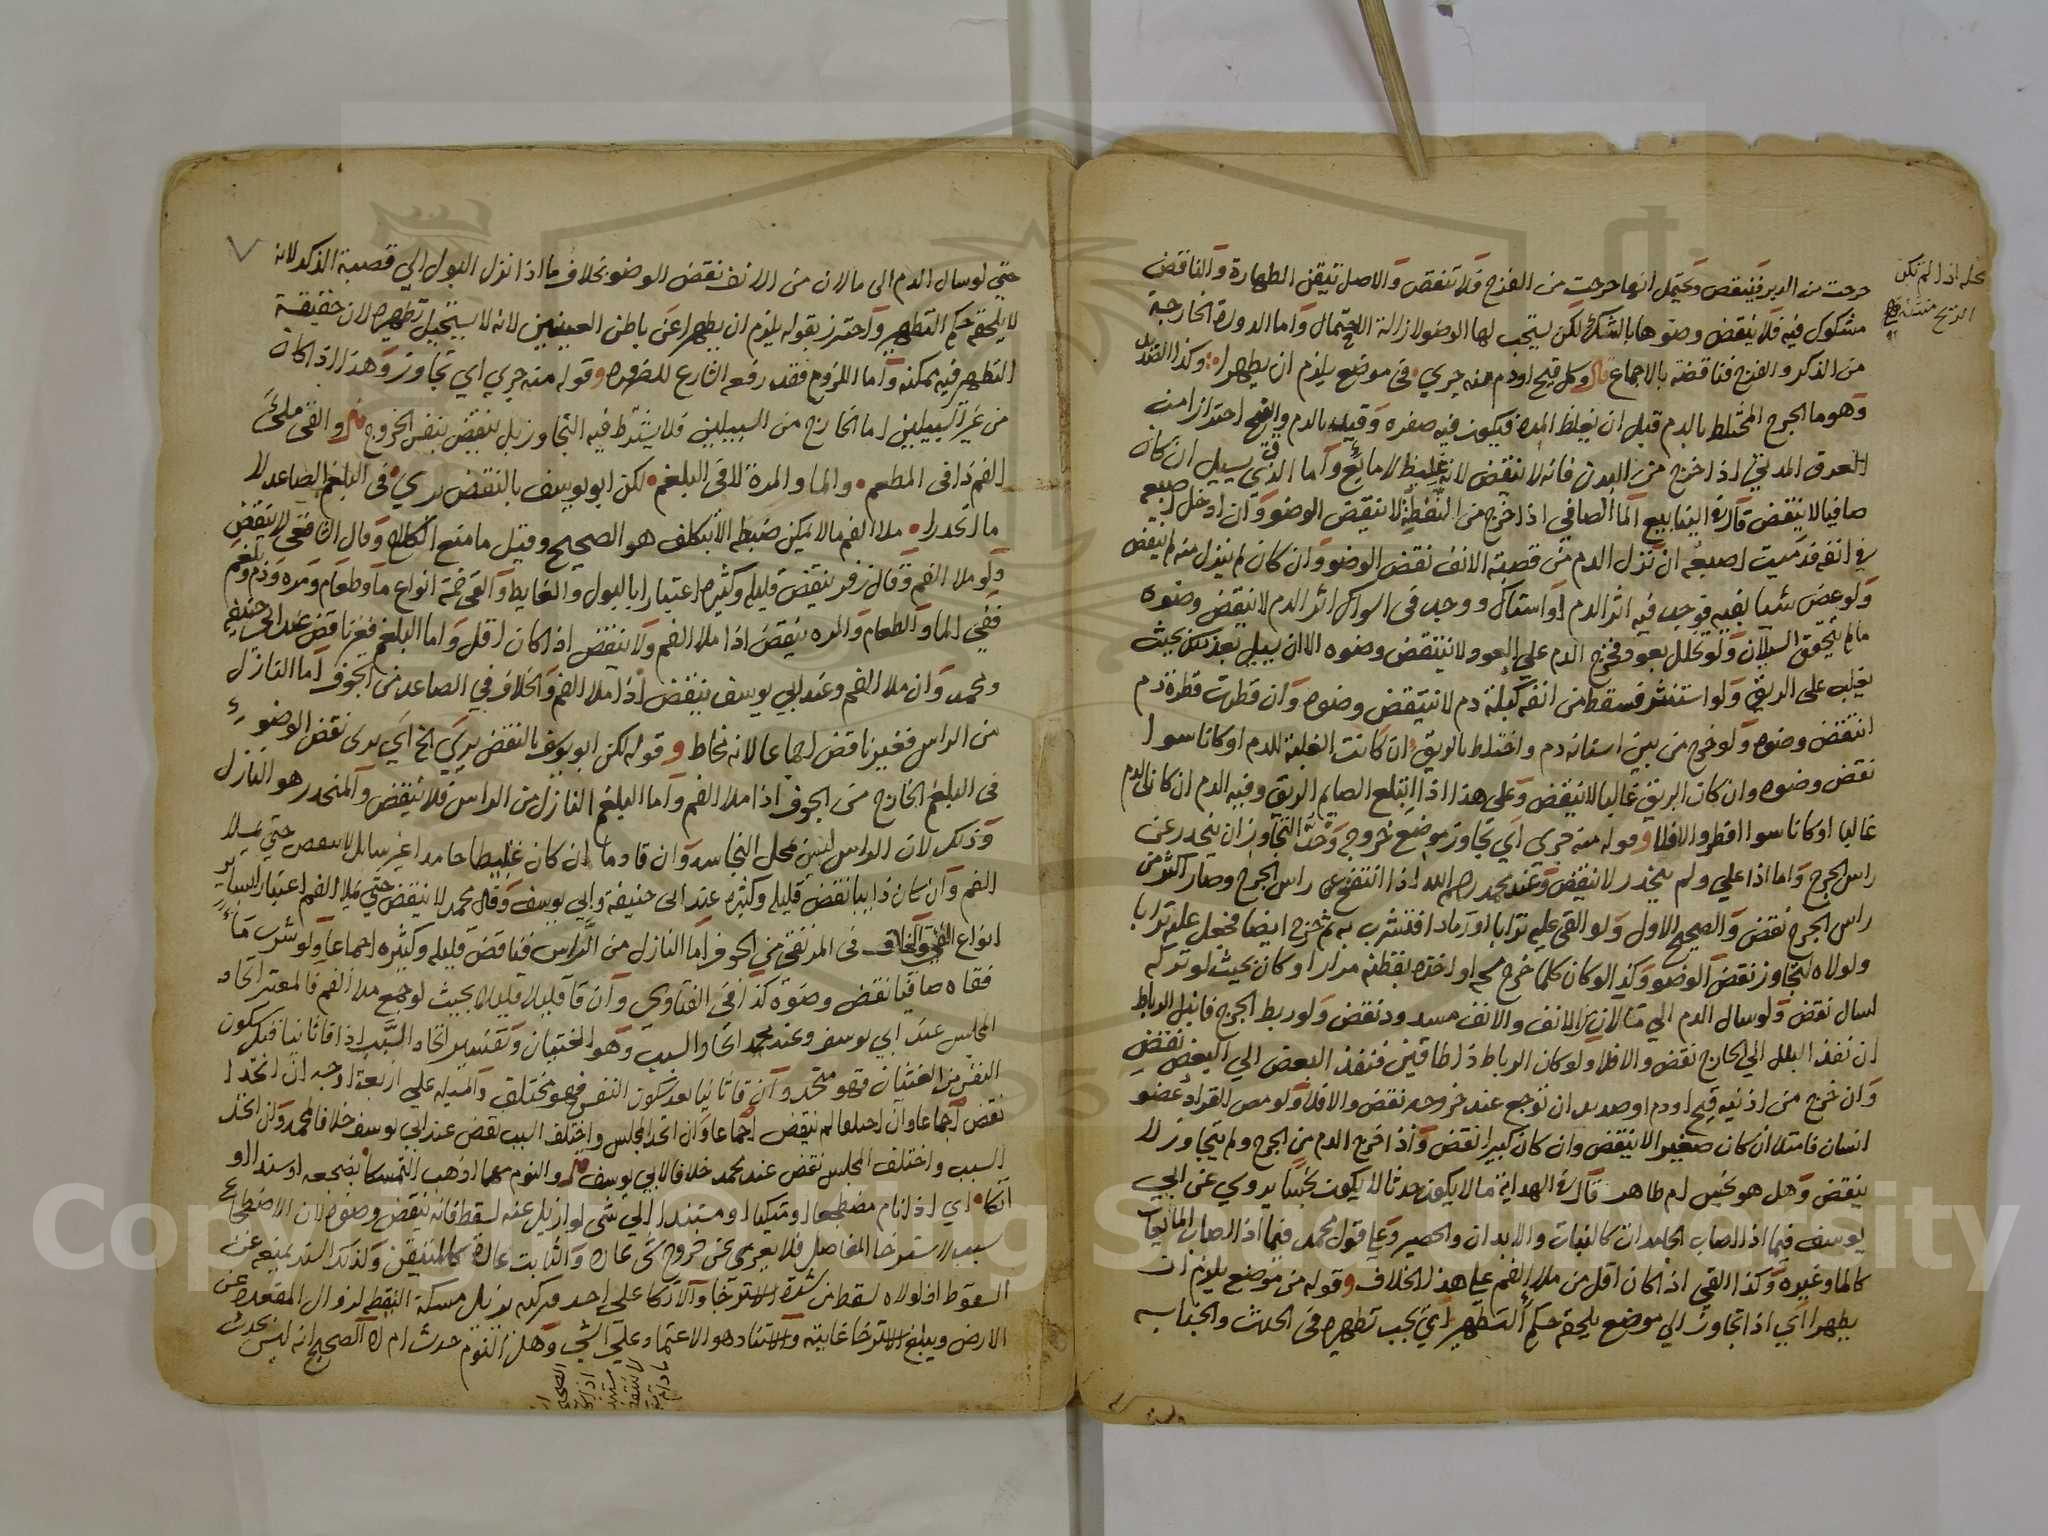 خرجت من الدبر فينقض ويحتمل انها خرجت من الفرج فلا تنقض والاصل تيقن الطهارة والناقض
مشكوك فيه فلا ينقض وضوها بالشك لكن يستحب لها الوضو لازالة الاحتمال واما الدودة الخارجة
من الذكر والفرج فناقضة بالاجماع وكل قيح او دم منه جري في موضع يلزم ان يطهرا وكذا الصديد
وهو ما الجرح المختلط بالدم قبل ان يغلظ المده فيكون فيه صفره وقيد بالدم والقيح احترازا من
العرق المديني اذا خرج من البدن فانه لا ينقض لانه غليظ لا مايع واما الذي يسيل ان كان
صافيا لا ينقض قال في الينابيع الما الصافي اذا خرج من النفطة لا ينقض الوضو وان ادخل اصبعه
في انفه فدميت اصبعه ان نزل الدم من قصبة الانف نقض الوضو وان كان لم ينزل منه لم ينقض
ولو عض شيا بفيه فوجد فيه اثر الدم او استاك ووجد في السواك اثر الدم لا ينقض وضوه
مالم يتحقق السيلان ولو تخلل بعود فخرج الدم علي العود لا ينتقض وضوه الا ان يسيل بعد ذلك بحيث
يغلب على الريق ولو استنثر فسقط من انفه كتلة دم لا ينتقض وضوه وان قطرت قطرة دم
انتقض وضوه ولو خرج من بين اسنانه دم واختلط بالريق ان كانت الغلبة للدم او كانا سوا
نقض وضوه وان كان الريق غالبا لا ينقض وعلى هذا اذا ابتلع الصايم الريق وفيه الدم ان كان الدم
غالبا او كانا سوا افطر والا فلا وقوله منه جرى اي تجاوز موضع خروجه وحد التجاوز ان ينحدر عن
راس الجرح واما اذا علي ولم ينحدر لا ينقض وعند محمد رحمه الله اذا انتفخ على راس الجرح وصار اكثر من
راس الجرح نقض والصحيح الاول ولو القى عليه ترابا او رمادا فتشرب به ثم خرج ايضا فجعل عليه ترابا
ولولاه لتجاوز نقض الوضو وكذا لو كان كلما خرج مسحه او اخذه بقطنة مرارا وكان بحيث لو تركه
لسال نقض ولو سال الدم الي ما لان من الانف والانف مسدود نقض ولو ربط الجرح فابتل الرباط
ان نفذ البلل الي الخارج نقض والا فلا ولو كان الرباط ذا طاقين فنفذ البعض الي البعض نقض
وان خرج من اذنيه قيح او دم او صديد ان توجع عند خروجه نقض والا فلا ولو مص القراد عضو
انسان فامتلا ان كان صغيرا لا ينقض وان كان كبيرا نقض واذا خرج الدم من الجرح ولم يتجاوز لا
ينقض وهل هو نجس ام طاهر قال في الهداية ما لا يكون حدثا لا يكون نجسا يروي عن ابي
يوسف فيما اذا اصاب الجامدات كالثياب والابدان والحصير وعلى قول محمد فيما اذا اصاب المايعات
كالما وغيره وكذا القي اذا كان اقل من ملا الفم على هذا الخلاف وقوله من موضع يلزم ان
يطهرا اي اذا تجاوز الي موضع يلحقه حكم التطهير اي يجب تطهيره في الحدث والجنابه
محله اذا لم تكن
الريح منتنة
حتى لو سال الدم الى ما لان من الانف نقض الوضو بخلاف ما اذا نزل البول الي قصبة الذكر لانه
لا يلحقه حكم التطهير واحترز بقوله يلزم ان يطهرا عن باطن العينين لانه لا يستحيل تطهيره لان حقيقة
التطهير فيه ممكنه واما اللزوم فقد رفعه الشارع للضروره وقوله منه جري اي تجاوز وهذا اذا كان
من غير السبيلين اما الخارج من السبيلين فلا يشترط فيه التجاوز بل ينقض بنفس الخروج والقي ملئ
الفم ذا في المطعم والما والمرة لا في البلغم لكن ابو يوسف بالنقض يري في البلغم الصاعد لا
ما انحدرا ملا الفم ما لا يمكن ضبطه الا بتكلف هو الصحيح وقيل ما منع الكلام وقال الشافعي لا ينقض
ولو ملا الفم وقال زفر ينقض قليله وكثيره اعتبارا بالبول والغايط والقي خمسة انواع ما وطعام ومره ودم وبلغم
ففي الما والطعام والمره ينقض اذا ملا الفم ولا ينقض اذا كان اقل واما البلغم فغير ناقض عند ابي حنيفه
ومحمد وان ملا الفم وعند ابي يوسف ينقض اذا ملا الفم والخلاف في الصاعد من الجوف اما النازل
من الراس فغير ناقض اجماعا لانه مخاط وقوله لكن ابو يوسف بالنقض يري الخ اي يرى نقض الوضوء
في البلغم الخارج من الجوف اذا ملا الفم واما البلغم النازل من الراس فلا ينقض والمنحدر هو النازل
وذلك لان الراس ليس محل النجاسه وان قا دما ان كان غليظا جامدا غير سايل لا ينقض حتي يملا
الفم وان كان ذايبا نقض قليله وكثيره عند ابي حنيفة وابي يوسف وقال محمد لا ينقض حتي يملا الفم اعتبارا بساير
انواع القي والخلاف في المرتقي من الجوف اما النازل من الراس فناقض قليله وكثيره اجماعا ولو شرب ماء
فقاه صافيا نقض وضوه كذا في الفتاوي وان قا قليلا قليلا بحيث لو جمع ملا الفم فالمعتبر اتحاد
المجلس عند ابي يوسف وعند محمد اتحاد السبب وهو الغثيان وتفسير اتحاد السبب اذا قا ثانيا قبل سكون
النفس من الغثيان فهو متحد وان قا ثانيا بعد سكون النفس فهو مختلف والمسيله علي اربعة اوجه ان اتحدا
نقض اجماعا وان اختلفا لم ينقض اجماعا وان اتحد المجلس واختلف السبب نقض عند ابي يوسف خلافا لمحمد وان اتحد
السبب واختلف المجلس نقض عند محمد خلافا لابي يوسف والنوم مهما اذهب التمسكا بضجعه او سند او
اتكا اي اذا نام مضطجعا او متكيا او مستندا الي شي لو ازيل عنه لسقط فانه ينقض وضوه لان الاضطجاع
سبب لاسترخا المفاصل فلا يعري عن خروج شي عادة والثابت عادة كالمتيقن وكذلك السند يمنعه عن
السقوط اذ لولاه لسقط من شدة الاسترخا والاتكا علي احد وركيه يزيل مسكة اليقظه لزوال المقعده عن
الارض ويبلغ الاسترخا غايته والاستناد هو الاعتماد علي الشي وهل النوم حدث ام لا الصحيح انه ليس بحدث